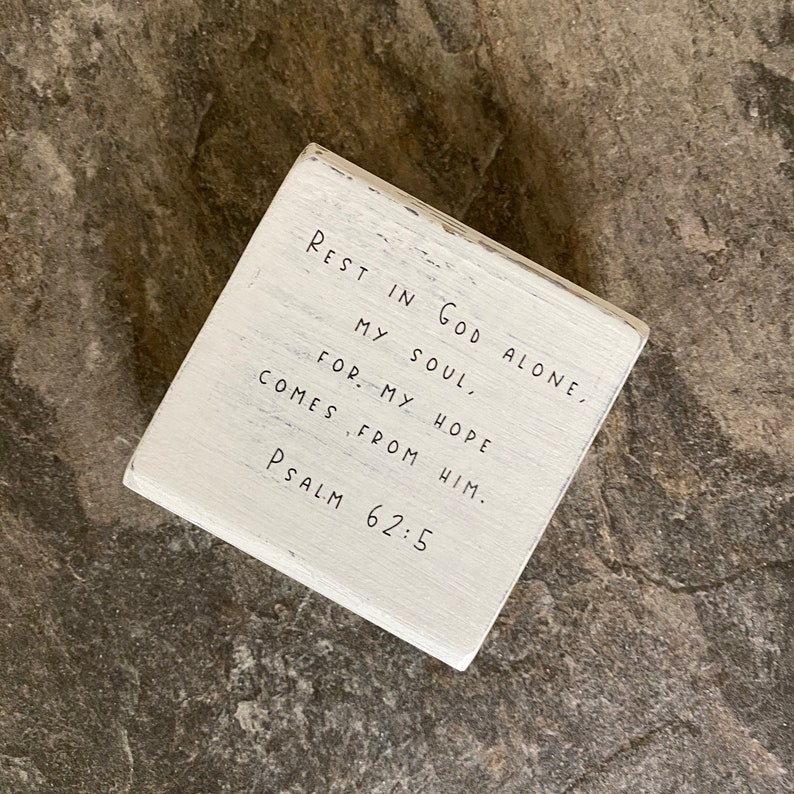 Rest in God alone,
my soul,
for my hope
comes from him.
Psalm 62:5